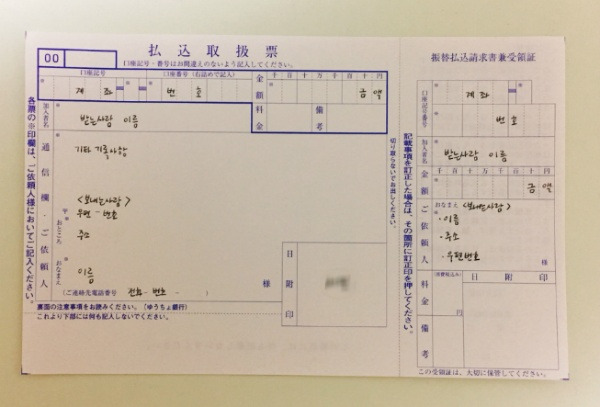 00
払込取扱票
口座記号・番号はお間違えのないよう記入してください。
口座記号
口座番号（右詰めで記入）
계 좌
번 호
金額
千 百 十 万 千 百 十 円
금 액
加入者名
받는사람 이름
料金
備考
通信欄・ご依頼人
기타 기록사항
<보내는사람>
우편-번호
おところ
주소
おなまえ
이름
様
（ご連絡先電話番号 전화-번호 - ）
日附印
裏面の注意事項をお読みください。（ゆうちょ銀行）
これより下部には何も記入しないでください。
各票の※印欄は、ご依頼人様においてご記入ください。
切り取らないでお出しください。
記載事項を訂正した場合は、その箇所に訂正印を押してください。
振替払込請求書兼受領証
口座記号番号
계 좌
번 호
加入者名
받는사람 이름
金額
千 百 十 万 千 百 十 円
금 액
ご依頼人
おなまえ
<보내는사람>
・이름
・주소
・우편번호
様
料金
（消費税込み）
円
日附印
備考
この受領証は、大切に保管してください。